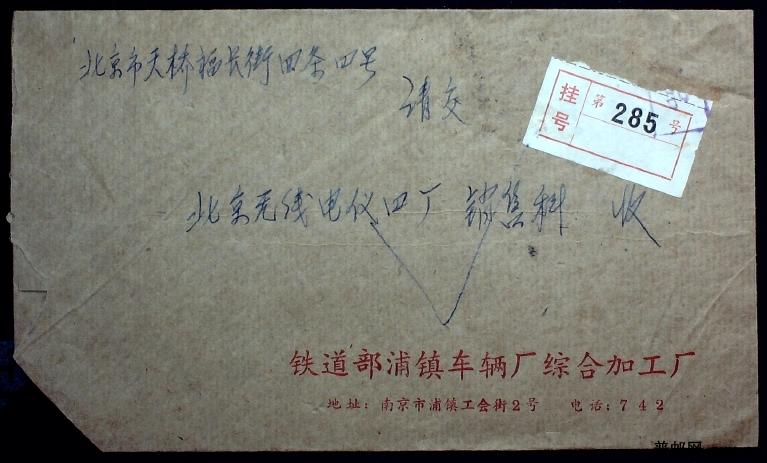 北京市天桥福长街四条四号
请交
挂号
第 285 号
北京无线电仪四厂 销售科 收
铁道部浦镇车辆厂综合加工厂
地址：南京市浦镇工会街2号 电话：742
普邮网